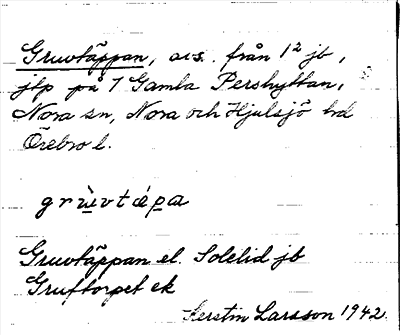 Gruvtäppan, avs. från 1² jb,
jtp på 7 Gamla Pershyttan,
Nora sn, Nora och Hjulsjö hd
Örebro l.
grùvtépa
Gruvtäppan el. Solelid jb
Gruftorpet ek
Kerstin Larsson 1942.